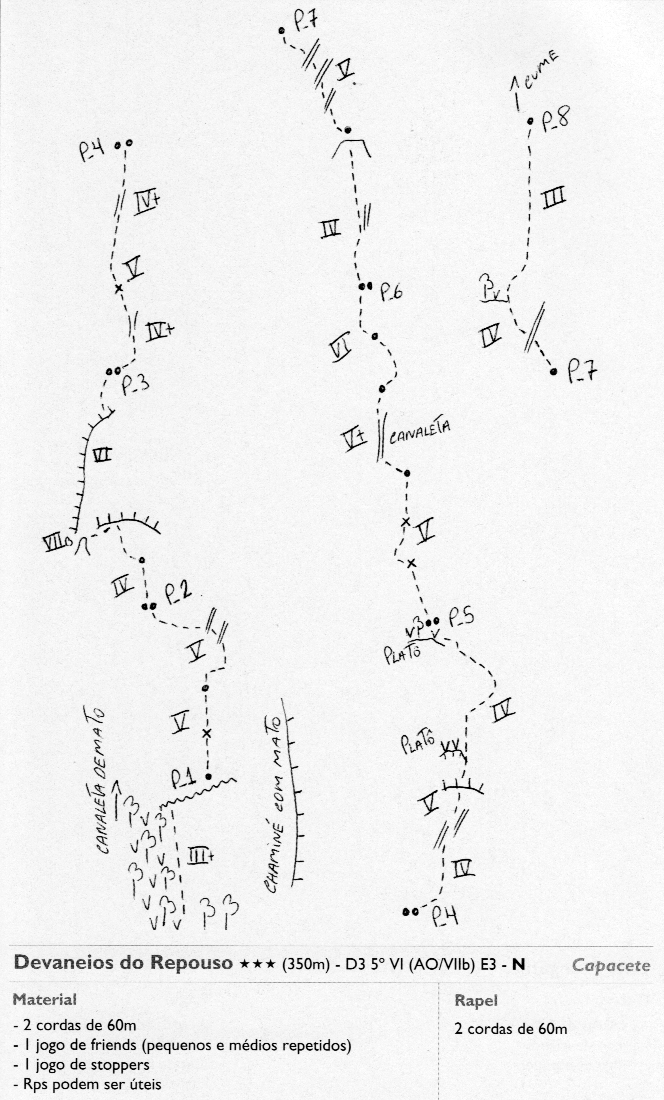 P_7
V
P_4
IV+
V
IV+
P_3
VI
VIIB
IV
P_2
V
V
P_1
CANALETA DE MATO
III+
CHAMINÉ COM MATO
IV
P_6
VI
V+
CANALETA
V
P_5
PLATÔ
IV
PLATÔ
V
IV
P_4
CUME
P_8
III
IV
P_7
Devaneios do Repouso ★★★ (350m) - D3 5º VI (AO/VIIb) E3 - N
Capacete
Material
- 2 cordas de 60m
- 1 jogo de friends (pequenos e médios repetidos)
- 1 jogo de stoppers
- Rps podem ser úteis
Rapel
2 cordas de 60m